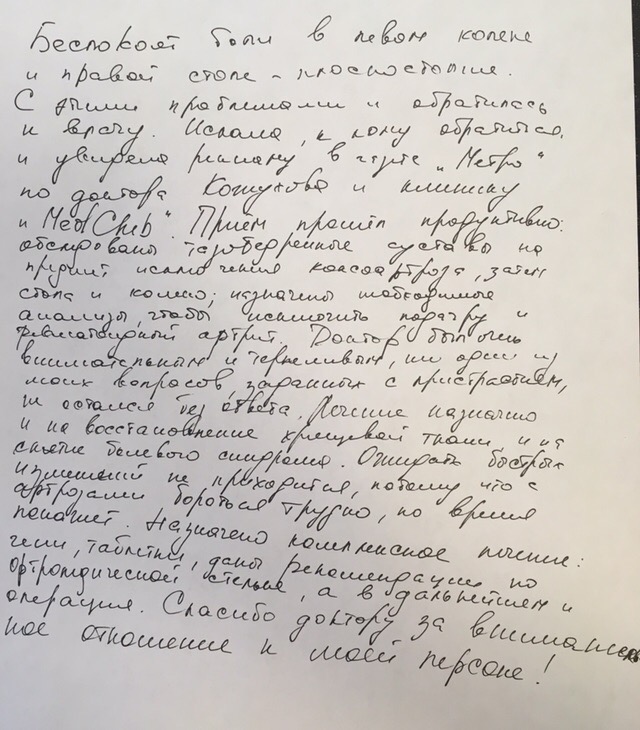 Беспокоят боли в левом колене
и правой стопе - плоскостопие.
С этими проблемами и обратилась
к врачу. Искала, к кому обратиться,
и увидела рекламу в газете „Метро"
про доктора и клинику
и „MedClub". Приём прошёл продуктивно:
обследованы тазобедренные суставы на
предмет исключения коксоартроза, затем
стопа и колено; назначены необходимые
анализы, чтобы исключить подагру и
ревматоидный артрит. Доктор был очень
внимательным и терпеливым, ни один из
моих вопросов, заданных с пристрастием,
не остался без ответа. Лечение назначено
и на восстановление хрящевой ткани, и на
снятие болевого синдрома. Ожидать быстрых
изменений не приходится, потому что с
артрозами бороться трудно, но время
покажет. Назначено комплексное лечение:
гели, таблетки, даны рекомендации по
ортопедической стельке, а в дальнейшем и
операция. Спасибо доктору за вниматель
ное отношение к моей персоне!